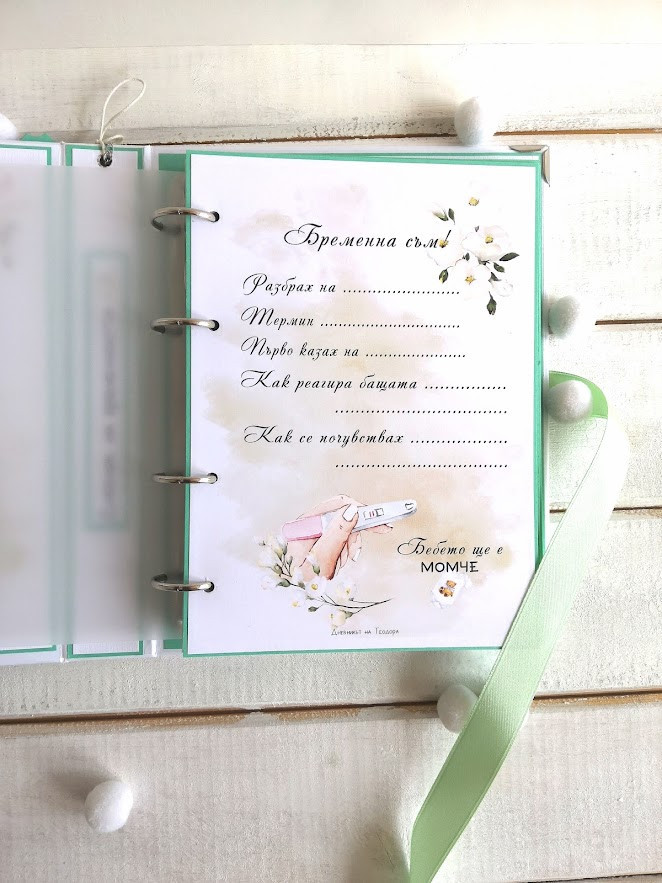 Бременна съм!
Разбрах на .......................
Термин ...........................
Първо казах на ...................
Как реагира бащата ...............
.................................
Как се почувствах ..................
.................................
Бебето ще е
МОМЧЕ
Дневникът на Теодора